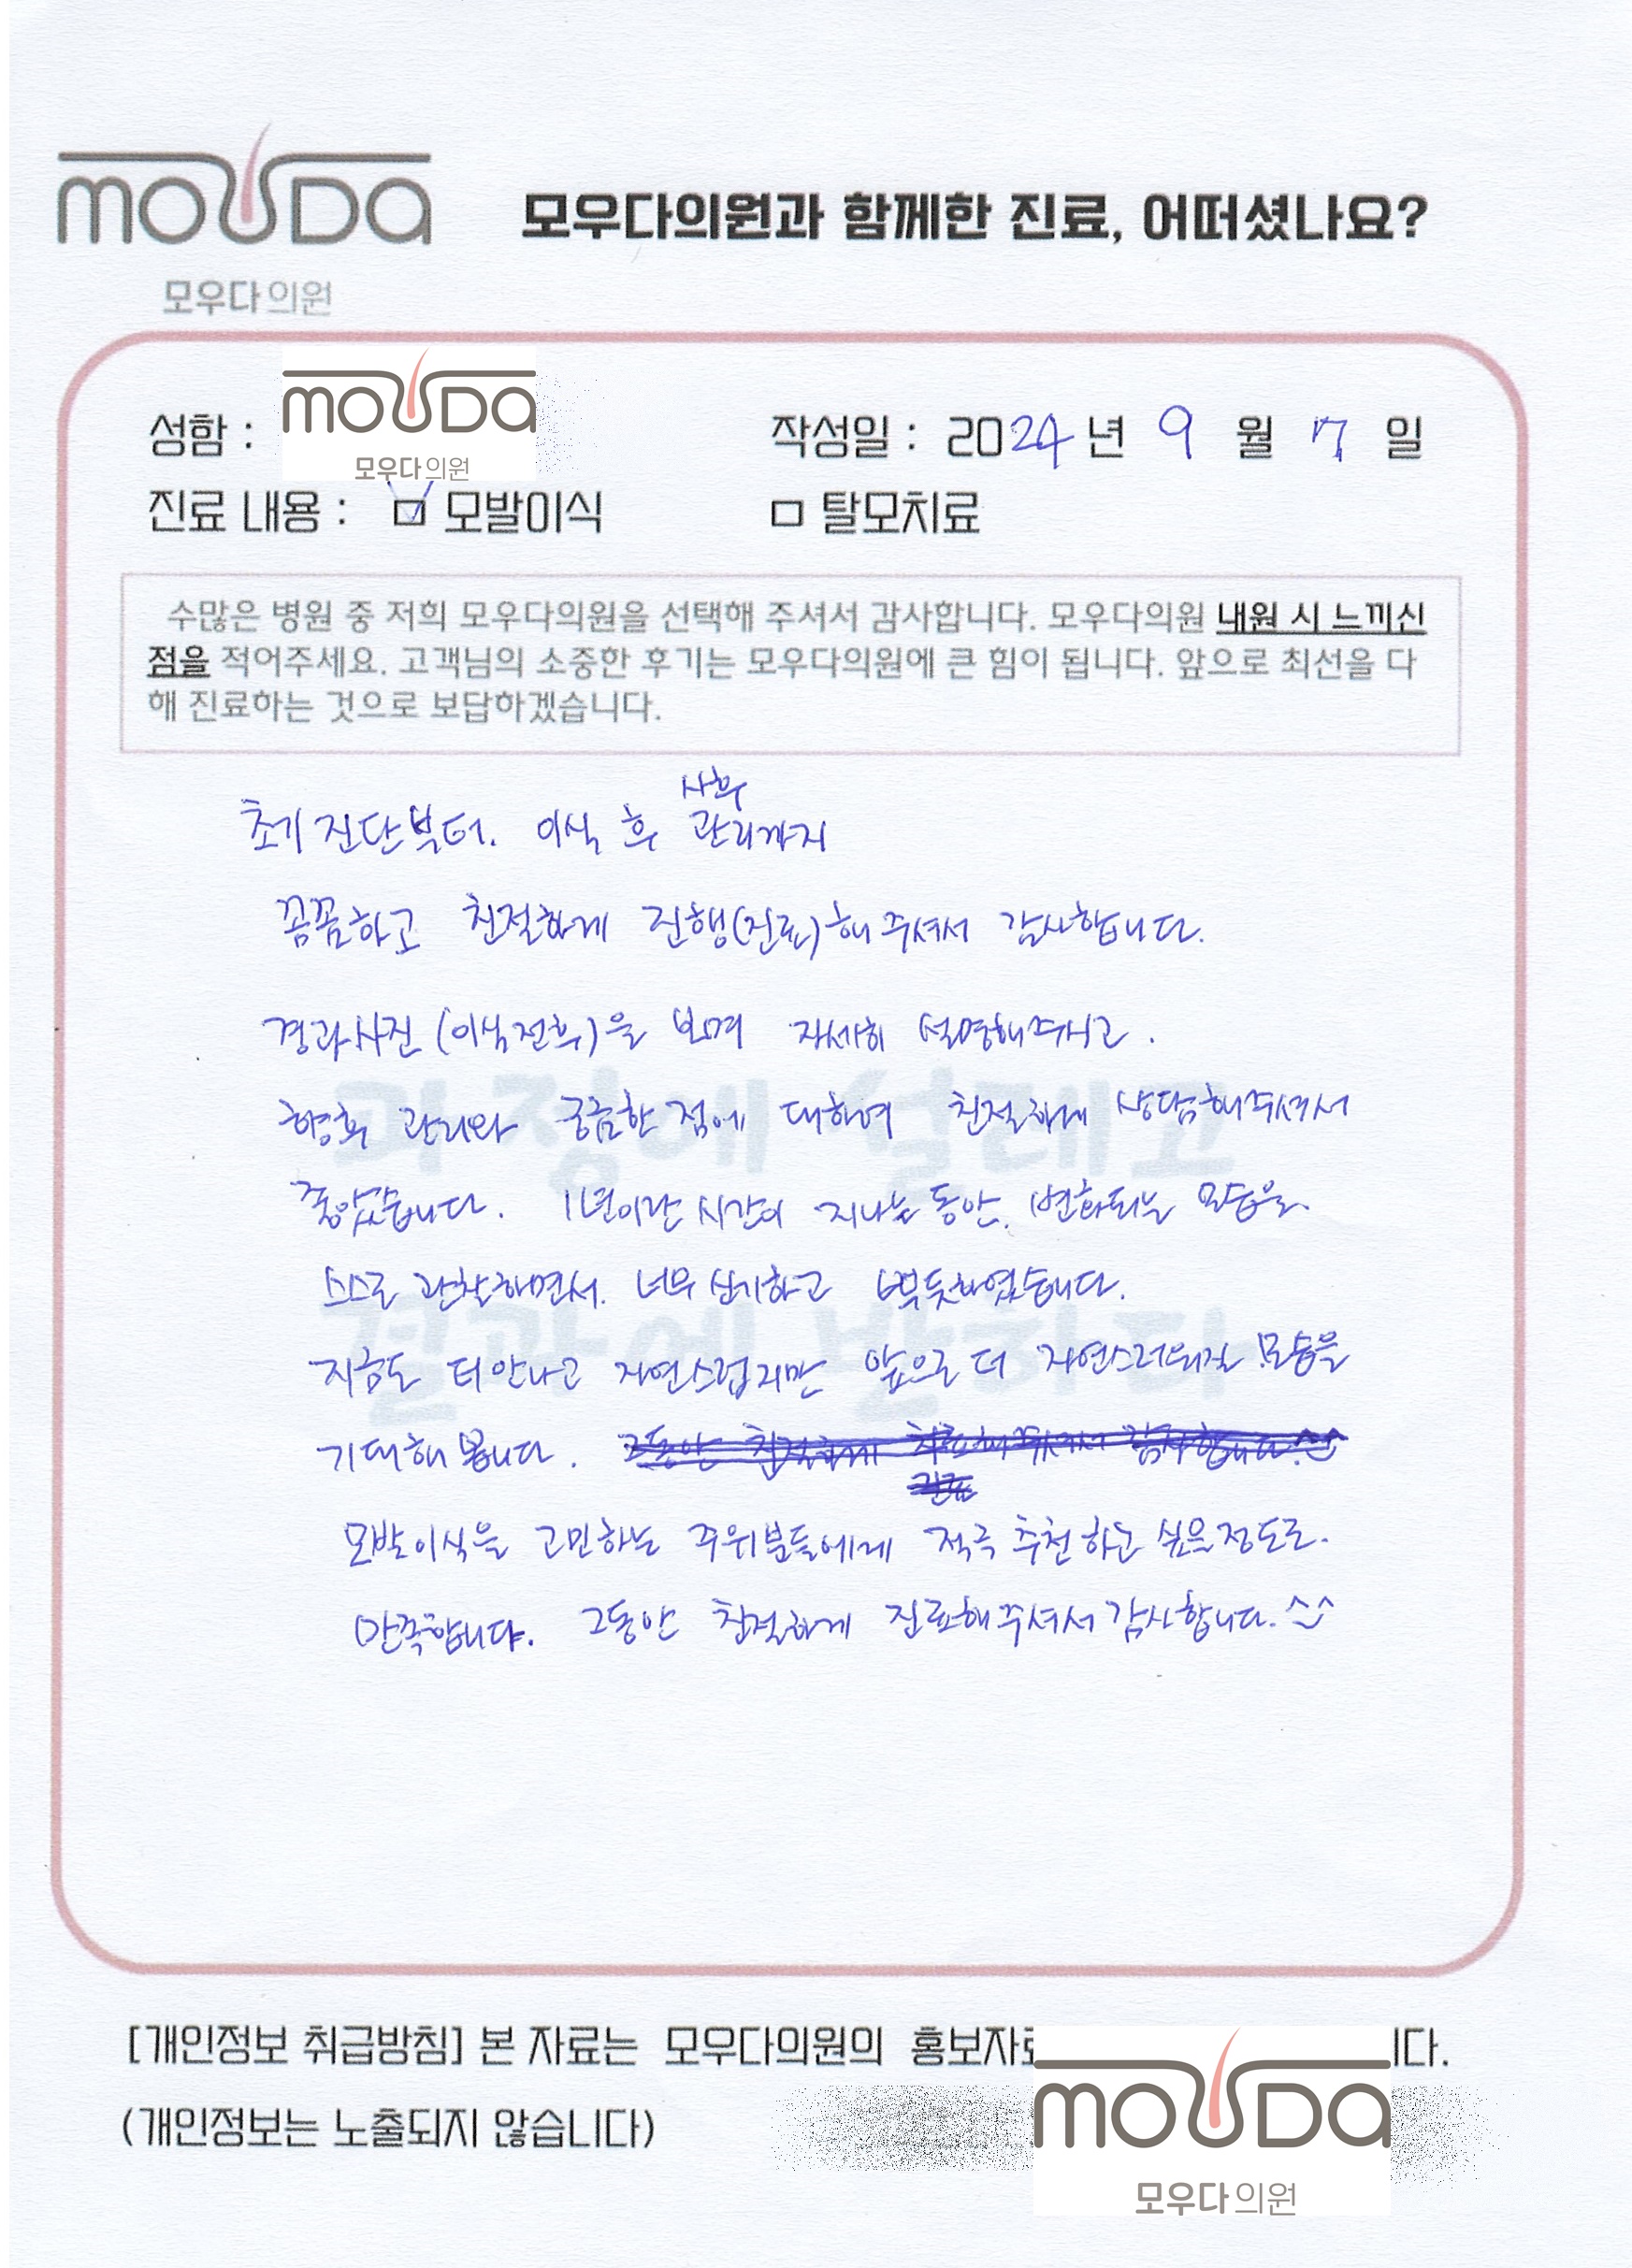 mouda
모우다의원
모우다의원과 함께한 진료, 어떠셨나요?
성함 :
mouda
모우다의원
작성일 : 2024년 9 월 7 일
진료 내용 : ☑ 모발이식 □ 탈모치료
수많은 병원 중 저희 모우다의원을 선택해 주셔서 감사합니다. 모우다의원 내원 시 느끼신
점을 적어주세요. 고객님의 소중한 후기는 모우다의원에 큰 힘이 됩니다. 앞으로 최선을 다
해 진료하는 것으로 보답하겠습니다.
초기 진단부터. 이식 후 사후 관리까지
꼼꼼하고 친절하게 진행(진료)해 주셔서 감사합니다.
경과사진 (이식전후)을 보며 자세히 설명해주시고.
향후 관리와 궁금한 점에 대하여 친절하게 상담해주셔서
좋았습니다. 1년이란 시간이 지나는 동안. 변화되는 모습을
스스로 관찰하면서. 너무 신기하고 뿌듯하였습니다.
지금도 티 안나고 자연스럽지만 앞으로 더 자연스러워질 모습을
기대해 봅니다. 그동안 친절하게 치료해 주셔서 감사합니다. ^^
진료
모발이식을 고민하는 주위분들에게 적극 추천하고 싶을정도로.
만족합니다. 그동안 친절하게 진료해주셔서 감사합니다. ^^
과정에 설레고
결과에 반하다
[개인정보 취급방침] 본 자료는 모우다의원의 홍보자료 니다.
(개인정보는 노출되지 않습니다)
mouda
모우다의원